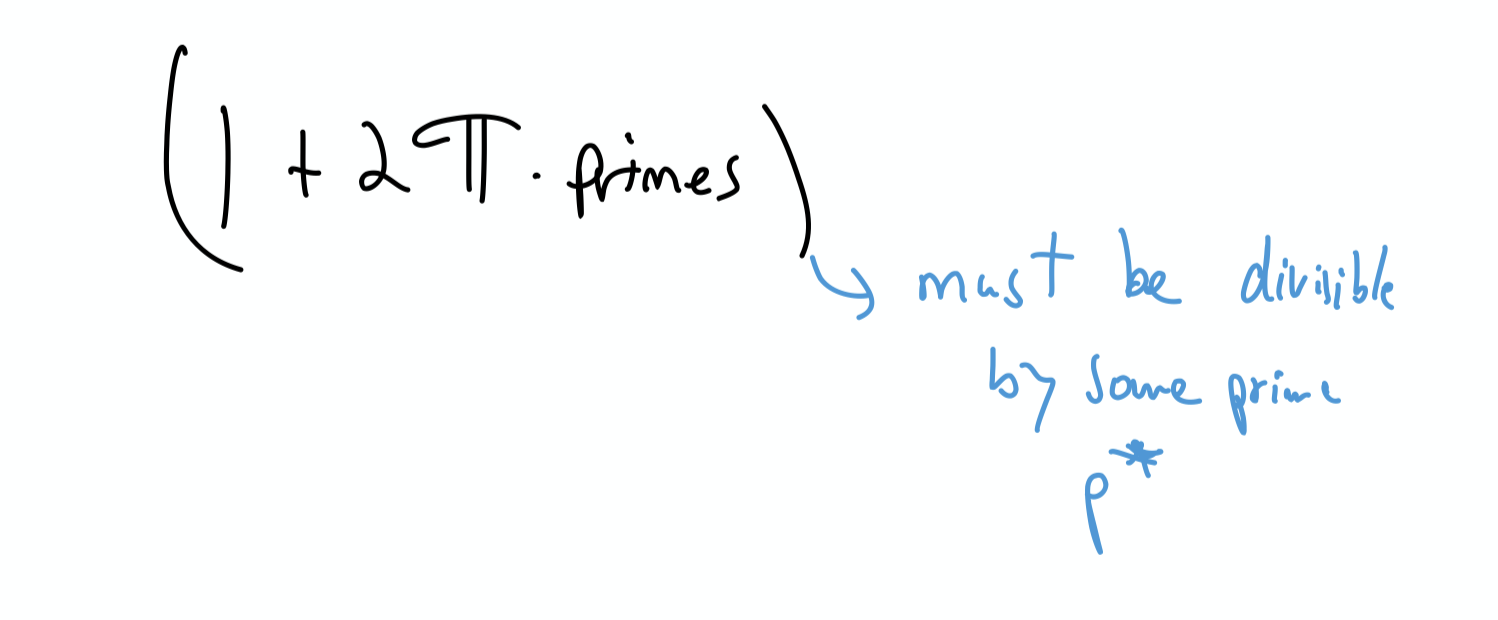 (1 + 2π · primes)
→ must be divisible
by some prime
p*